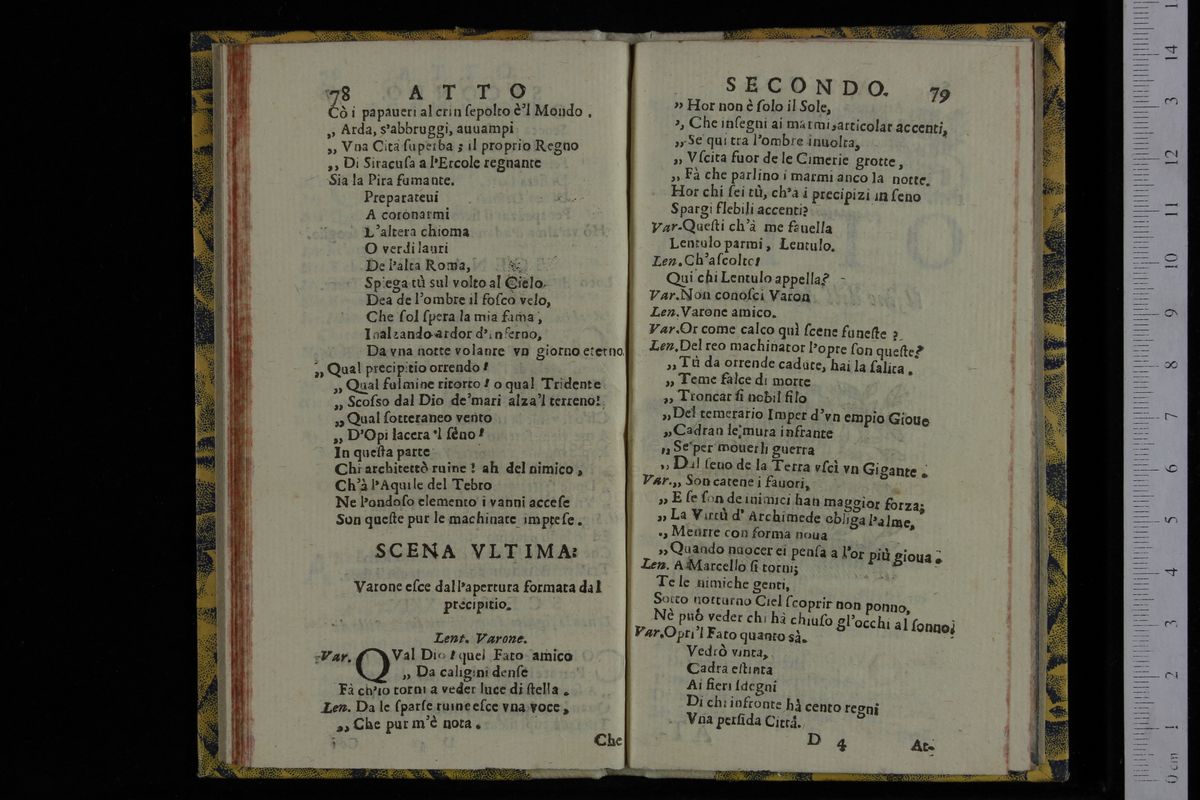 78 ATTO
Cò i papaueri al crin ſepolto è'l Mondo .
„ Arda, s'abbruggi, auuampi
„ Vna Cità ſuperba ; il proprio Regno
„ Di Siracuſa a l'Ercole regnante
Sia la Pira fumante.
Preparateui
A coronarmi
L'altera chioma
O verdi lauri
De l'alta Roma,
Spiega tù sul volto al Cielo
Dea de l'ombre il foſco velo,
Che ſol ſpera la mia fama ,
Inalzando ardor d'inferno,
Da vna notte volante vn giorno eterno
„ Qual precipitio orrendo !
„ Qual fulmine ritorto ! o qual Tridente
„ Scoſso dal Dio de'mari alza'l terreno!
„ Qual ſotteraneo vento
„ D'Opi lacera 'l ſeno !
In queſta parte
Chi architettò ruine ! ah del nimico ,
Ch'à l'Aquile del Tebro
Ne l'ondoſo elemento i vanni acceſe
Son queſte pur le machinate impreſe .
SCENA VLTIMA:
Varone eſce dall'apertura formata dal
precipitio.
Lent. Varone.
Var. QVal Dio ! quel Fato amico
„ Da caligini denſe
Fà ch'io torni a veder luce di ſtella .
Len. Da le ſparſe ruine eſce vna voce ,
„ Che pur m'è nota .
Che
SECONDO. 79
„ Hor non è ſolo il Sole,
„ Che inſegni ai marmi articolar accenti,
„ Se qui tra l'ombre inuolta,
„ Vſcita fuor de le Cimerie grotte ,
„ Fà che parlino i marmi anco la notte.
Hor chi ſei tù, ch'a i precipizi in ſeno
Spargi flebili accenti?
Var. Queſti ch'à me fauella
Lentulo parmi , Lentulo.
Len. Ch'aſcolto!
Qui chi Lentulo appella?
Var. Non conoſci Varon
Len. Varone amico.
Var. Or come calco quì ſcene funeſte ?
Len. Del reo machinator l'opre ſon queſte?
„ Tù da orrende cadute, hai la ſalita .
„ Teme falce di morte
„ Troncar ſi nobil filo
„ Del temerario Imper d'vn empio Gioue
„ Cadran le mura infrante
„ Se per mouerli guerra
„ Dal ſeno de la Terra vſcì vn Gigante .
Var. „ Son catene i fauori,
„ E ſe ſon de inimici han maggior forza;
„ La Virtù d' Archimede obliga l'alme,
„ Mentre con forma noua
„ Quando nuocer ei penſa a l'or più gioua .
Len. A Marcello ſi torni;
Te le nimiche genti,
Sotto notturno Ciel ſcoprir non ponno,
Nè può veder chi hà chiuſo gl'occhi al ſonno;
Var. Opri'l Fato quanto sà.
Vedrò vinta,
Cadra eſtinta
Ai fieri ſdegni
Di chi infronte hà cento regni
Vna perfida Città.
D 4 At-